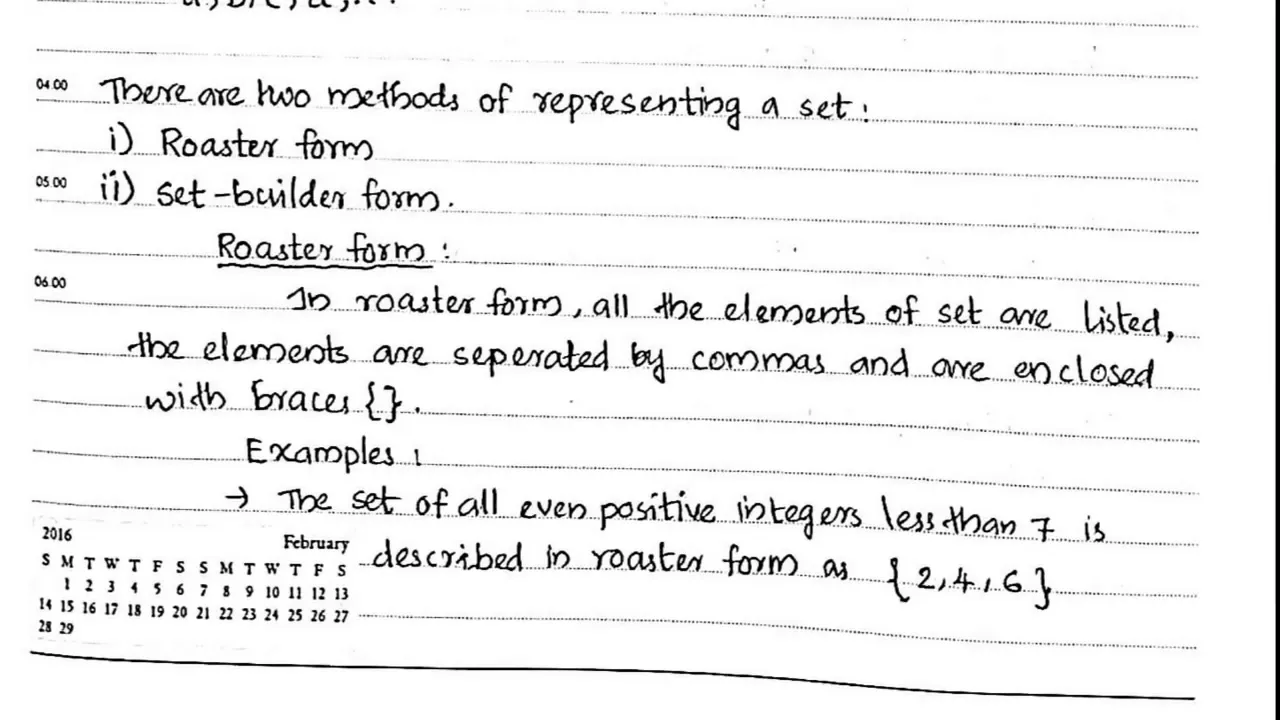 04.00 There are two methods of representing a set:
i) Roaster form
05.00 ii) set-builder form.
Roaster form:
06.00
In roaster form, all the elements of set are listed,
the elements are seperated by commas and are enclosed
with braces {}.
Examples :
→ The set of all even positive integers less than 7 is
described in roaster form as {2, 4, 6}
2016 February
S M T W T F S S M T W T F S
1 2 3 4 5 6 7 8 9 10 11 12 13
14 15 16 17 18 19 20 21 22 23 24 25 26 27
28 29